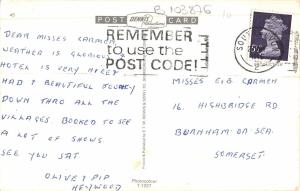 B 103876
10
45
POST CARD
DENNIS
REMEMBER
to use the
POST CODE!
SOUT
5½P
DEAR MISSES CARMEN
WEATHER IS GLORIOUS
HOTEL IS VERY NICE
HAD A BEAUTIFUL JOURNEY
DOWN THRO ALL THE
VILLAGES. BOOKED TO SEE
A LOT OF SHOWS
SEE YOU SAT.
OLIVE & PIP
HEYWOOD
MISSES E & B CARMEN
16, HIGHBRIDGE RD
BURNHAM-ON-SEA.
SOMERSET.
Photocolour